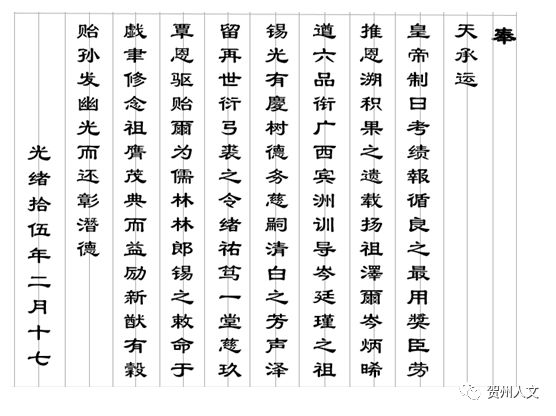 奉
天承运
皇帝制曰考绩報循良之最用奬臣劳
推恩溯积果之遗载扬祖澤爾岑炳晞
道六品衔广西宾洲训导岑廷瑾之祖
锡光有慶树德务慈嗣清白之芳声泽
留再世衍弓裘之令绪祐笃一堂慈玖
覃恩驱贻爾为儒林林郎锡之敕命于
戲聿修念祖膺茂典而益励新猷有榖
贻孙发幽光而还彰潜德
光绪拾伍年二月十七
贺州人文